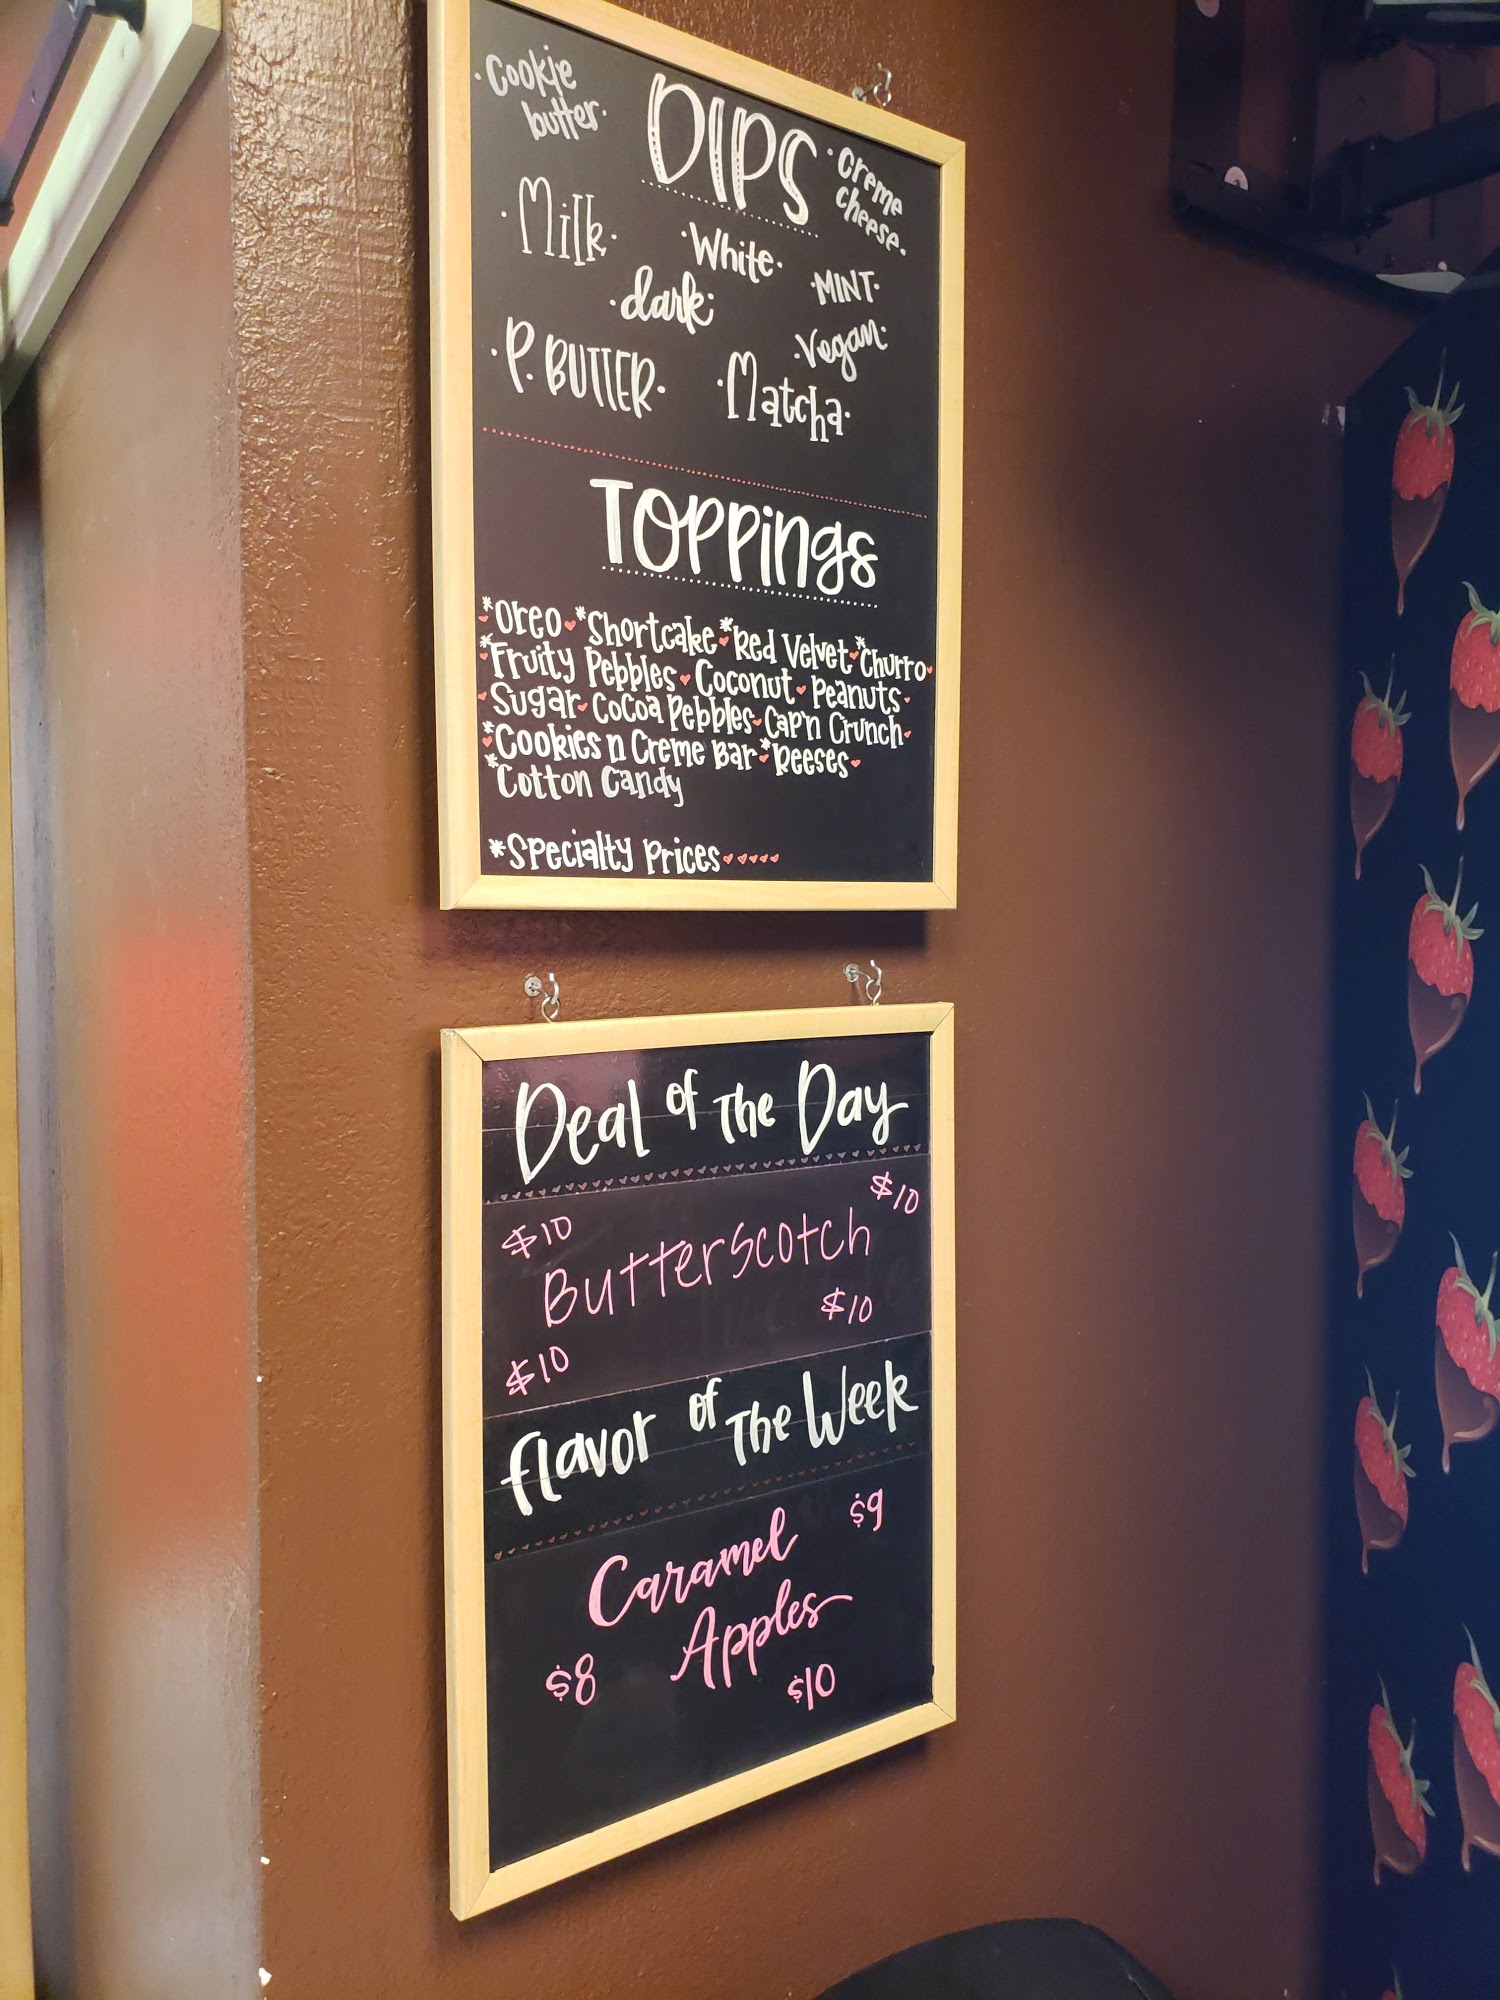 ·Cookie
butter·
DIPS
·Creme
cheese·
·Milk·
·White·
·MINT·
·dark·
·Vegan·
·P. BUTTER·
·Matcha·
TOPPings
*Oreo *Shortcake *Red Velvet *Churro
*Fruity Pebbles Coconut Peanuts
Sugar Cocoa Pebbles Cap'n Crunch
*Cookies n Creme Bar *Reeses
*Cotton Candy
*Specialty Prices
Deal of The Day
$10
$10
Butterscotch
$10
$10
flavor of The Week
Caramel
$9
Apples
$8
$10